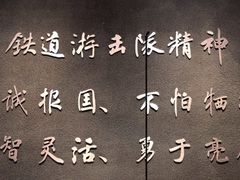 铁道游击队精神
诚报国、不怕牺
智灵活、勇于亮